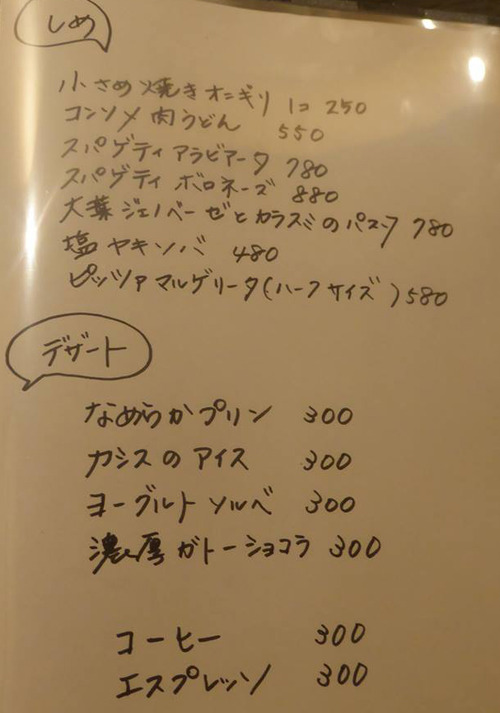 しめ
小さめ焼きオニギリ 1コ 250
コンソメ肉うどん 550
スパゲティアラビアータ 780
スパゲティ ボロネーズ 880
大葉ジェノベーゼとカラスミのパスタ 780
塩ヤキソバ 480
ピッツァマルゲリータ(ハーフサイズ)580
デザート
なめらかプリン 300
カシスのアイス 300
ヨーグルトソルベ 300
濃厚ガトーショコラ 300
コーヒー 300
エスプレッソ 300